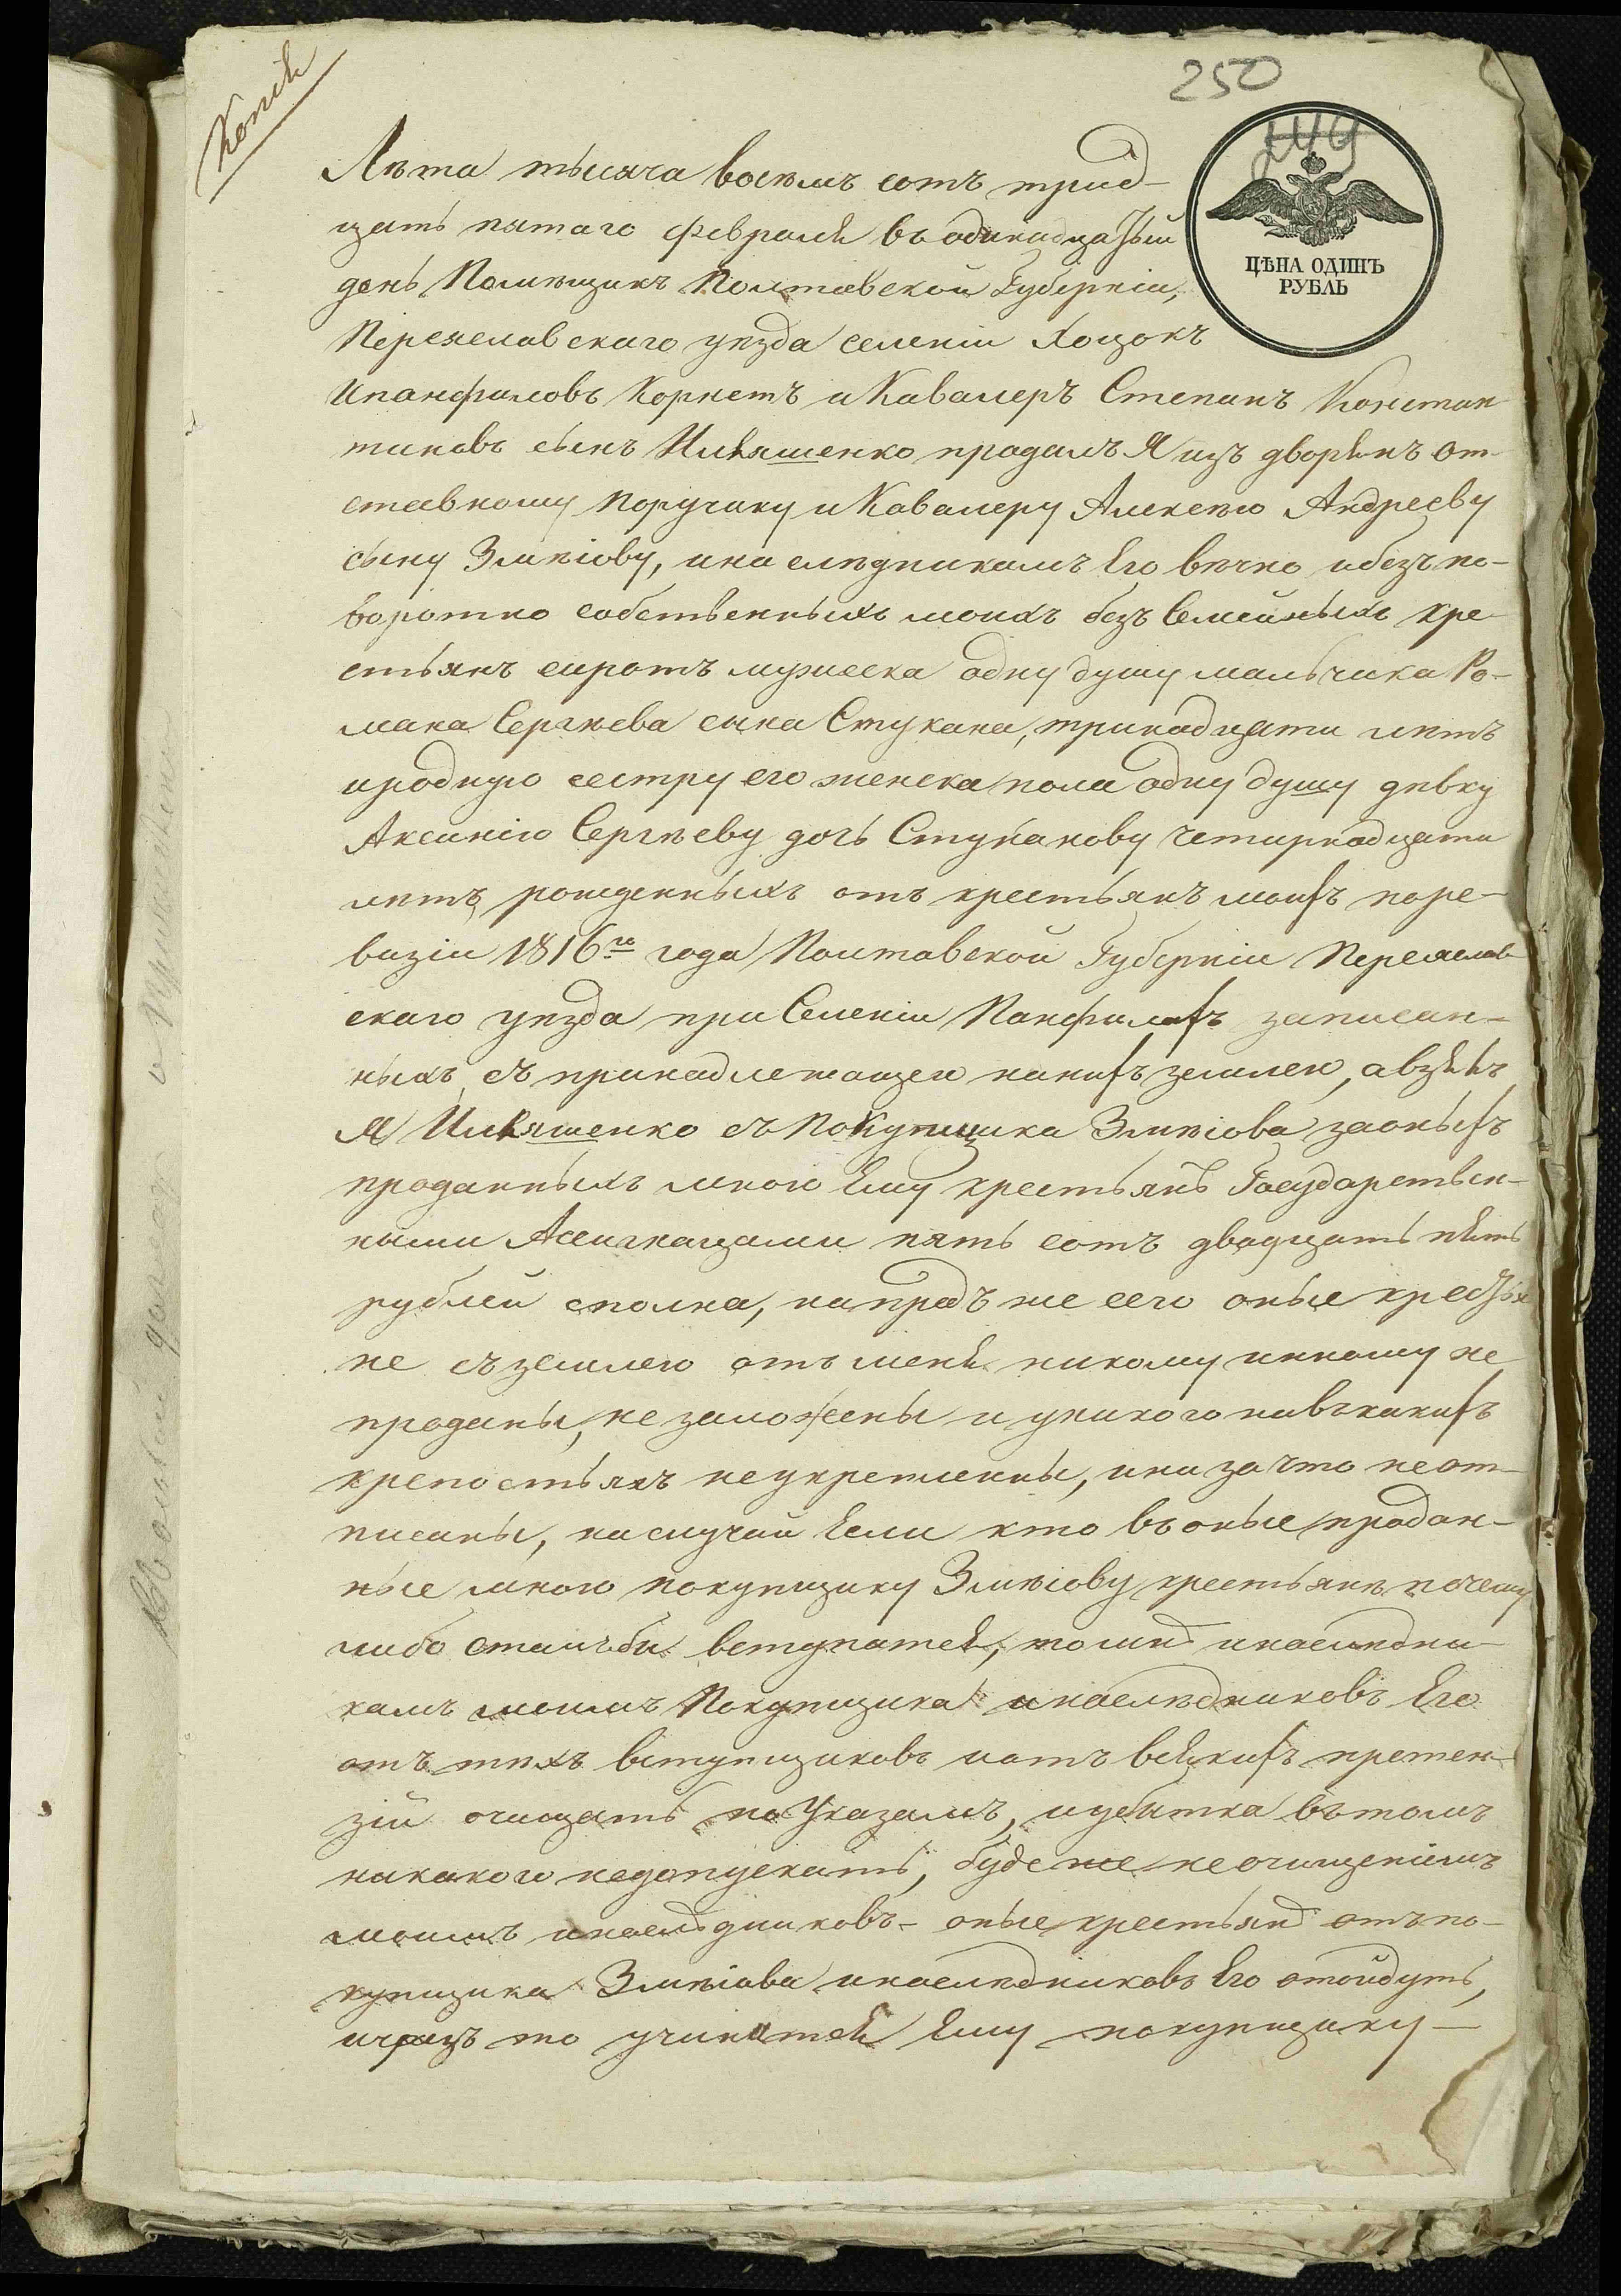 Копія
250
ЦѢНА ОДИНЪ
РУБЛЬ
Лѣта тысяча восѣмъ сотъ трид-
цать пятаго февраля въ одинадцатый
день, Помѣщикъ Полтавской Губерніи,
Переяславскаго уѣзда селеніи Хоцокъ
Ипанфиловъ Корнетъ и Кавалеръ Степанъ Констан
тиновъ сынъ Илляшенко продалъ Я изъ дворянъ от-
ставному Поручику и Кавалеру Алексѣю Андрееву
сыну Змѣіову, и наслѣдникамъ Его вѣчно и безъ по-
воротно собственныхъ моихъ безъ Семейныхъ кре-
стьянъ сиротъ мужеска одну душу мальчика Ро-
мана Сергѣева сына Стукана, тринадцати лѣтъ
и родную сестру его женска пола одну душу дѣвку
Аксинію Сергѣеву дочь Стуканову четырнадцати
лѣтъ рожденныхъ отъ крестьянъ моихъ по ре-
визіи 1816го года Полтавской Губерніи Переяслав-
скаго уѣзда при Селеніи Панфилахъ записан-
ныхъ, съ принадлежащею на нихъ землею, а взялъ
Я Илляшенко съ Покупщика Змѣіова за оныхъ
проданныхъ мною Ему крестьянъ Государствен-
ными Асигнацами пять сотъ двадцать пять
рублей сполна, напредъ же сего оные крестья
не съ землею отъ меня никому инному не
проданы, не заложены и у никого ни въ какихъ
крепостяхъ неукрепленны, и ни за что не от-
писаны, на случай Если кто въ оные продан-
ные мною покупщику Змѣіову крестьяне почему
либо сталъ бы вступатся, то мнѣ и наслѣдни-
камъ моимъ Покупщика и наслѣдниковъ Его
отъ тѣхъ вступщиковъ и отъ всякихъ претен-
зій очищать по Указамъ, и убытка въ томъ
никакого недопускать, буде же неочищеніемъ
моимъ и наслѣдниковъ - оные крестьянѣ отъ по-
купщика Змѣіова и наслѣдниковъ Его отойдутъ,
и чрезъ то учинятся Ему покупщику —